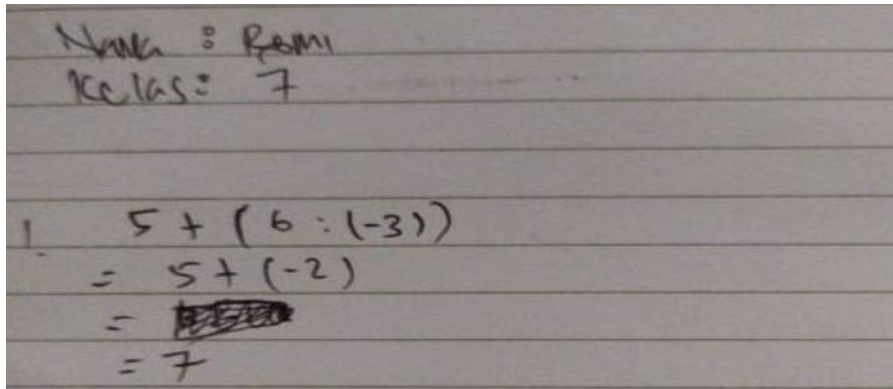 Nama : Romi
Kelas : 7
1. 5 + (6 : (-3))
= 5 + (-2)
=
= 7